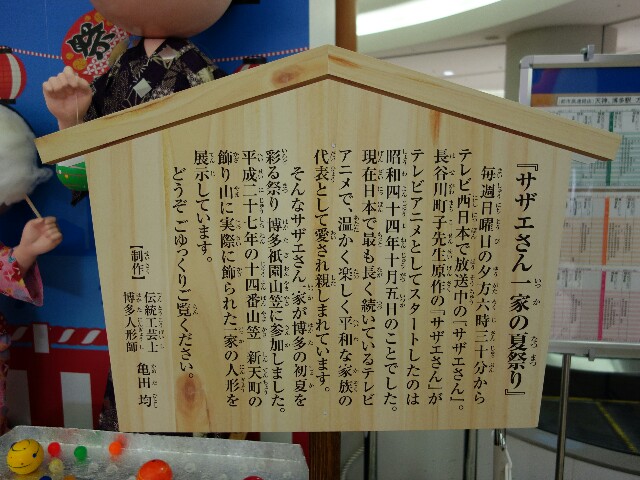 『サザエさん一家の夏祭り』
毎週日曜日の夕方六時三十分から
テレビ西日本で放送中の『サザエさん』。
長谷川町子先生原作の『サザエさん』が
テレビアニメとしてスタートしたのは
昭和四十四年十月五日のことでした。
現在日本で最も長く続いているテレビ
アニメで、温かく楽しく平和な家族の
代表として愛され親しまれています。
そんなサザエさん一家が博多の初夏を
彩る祭り、博多祇園山笠に参加しました。
平成二十七年の十四番山笠 新天町の
飾り山に実際に飾られた一家の人形を
展示しています。
どうぞごゆっくりご覧ください。
【制作】
伝統工芸士
博多人形師
亀田 均